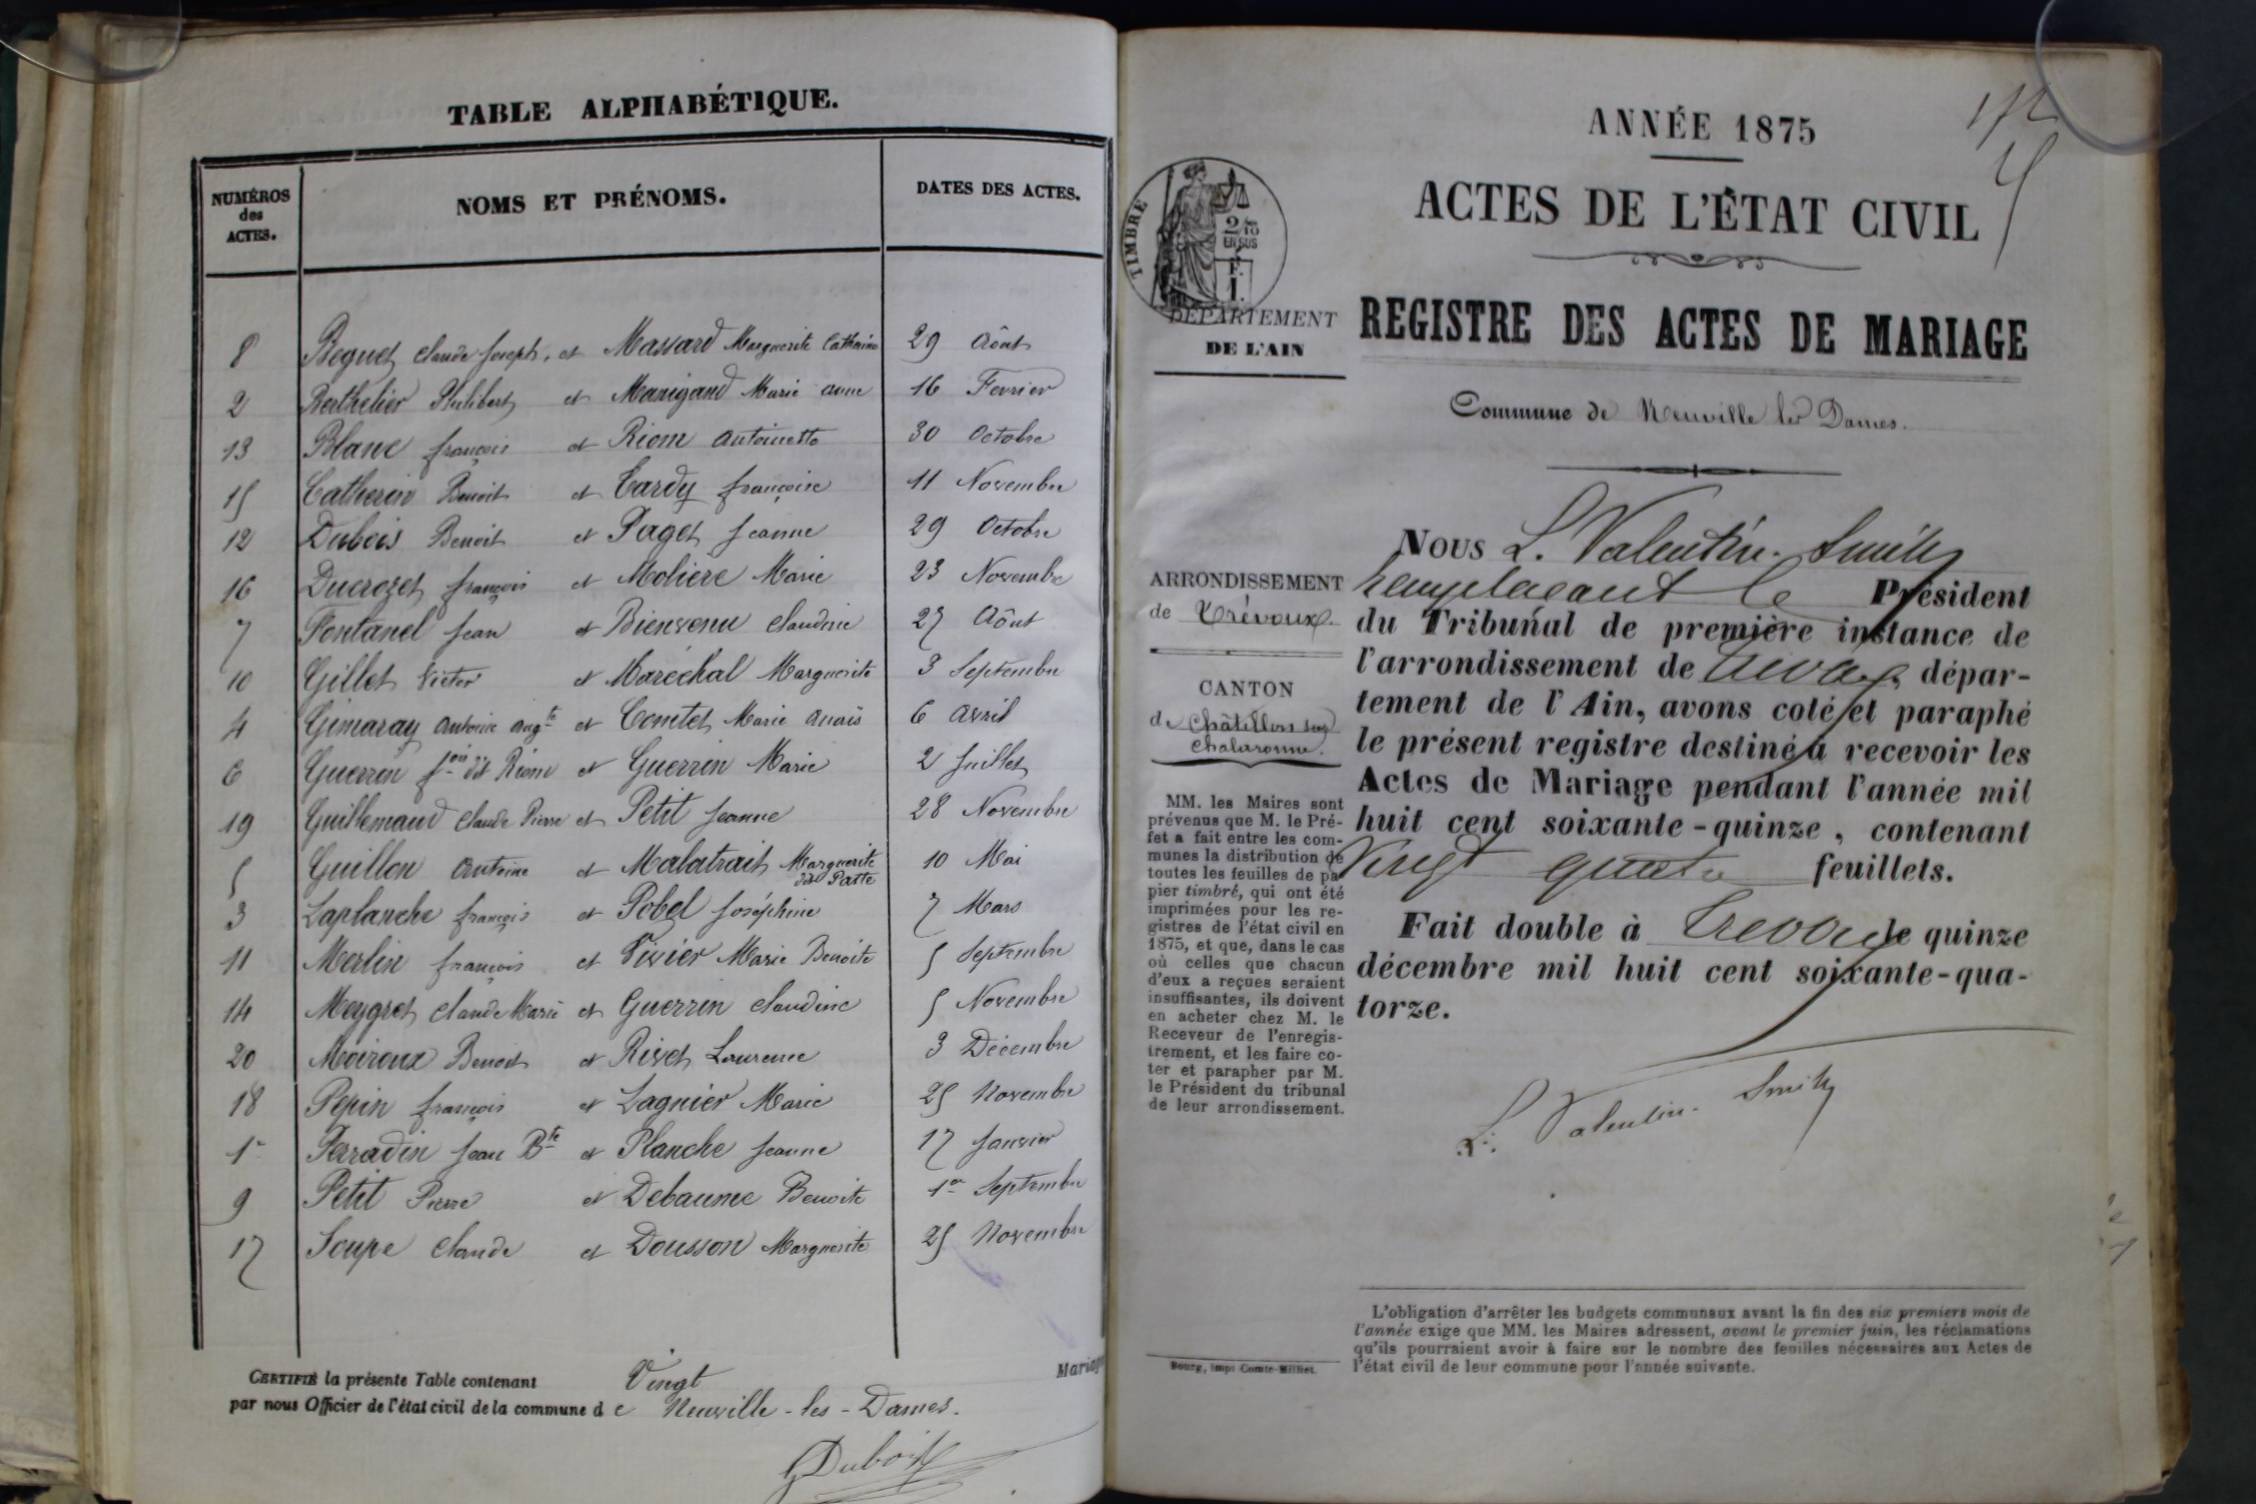 TABLE ALPHABÉTIQUE.
NUMÉROS des ACTES.
NOMS ET PRÉNOMS.
DATES DES ACTES.
8 Beguet Claude Joseph, et Massard Marguerite Catherine 29 Aôut
2 Berthelier Philibert et Manigand Marie anne 16 Fevrier
13 Blanc françois et Riom antoinette 30 Octobre
15 Catherin Benoit et Tardy françoise 11 Novembre
12 Dubois Benoit et Paget Jeanne 29 Octobre
16 Ducrozet françois et Molière Marie 23 Novembre
7 Fontanel Jean et Bienvenu Claudine 27 Aôut
10 Gillet Victor et Maréchal Marguerite 3 Septembre
4 Gimaray antoine augte et Comtet Marie anaïs 6 avril
6 Guerrin fois dit Riom et Guerrin Marie 2 Juillet
19 Guillemaud Claude Pierre et Petit Jeanne 28 Novembre
5 Guillon antoine et Malatrait Marguerite dit Patte 10 Mai
3 Laplanche françois et Pobel Joséphine 7 Mars
11 Merlin françois et Vivier Marie Benoite 5 Septembre
14 Meygret Claude Marie et Guerrin Claudine 5 Novembre
20 Moiroux Benoit et Rivet Laurence 3 Décembre
18 Pepin françois et Lagnier Marie 25 Novembre
1er Perradin Jean Bte et Planche Jeanne 17 Janvier
9 Petit Pierre et Debaume Benoite 1er Septembre
17 Soupe Claude et Dousson Marguerite 25 Novembre
Mariag
CERTIFIÉ la présente Table contenant Vingt
par nous Officier de l'état civil de la commune de Neuville-les-Dames.
GDubois
ANNÉE 1875
ACTES DE L'ÉTAT CIVIL
TIMBRE
2/10
EN SUS
F.
1.
DÉPARTEMENT
DE L'AIN
REGISTRE DES ACTES DE MARIAGE
Commune de Neuville les Dames.
ARRONDISSEMENT
de Trévoux.
CANTON
de Châtillon sur
Chalaronne.
MM. les Maires sont
prévenus que M. le Pré-
fet a fait entre les com-
munes la distribution de
toutes les feuilles de pa-
pier timbré, qui ont été
imprimées pour les re-
gistres de l'état civil en
1875, et que, dans le cas
où celles que chacun
d'eux a reçues seraient
insuffisantes, ils doivent
en acheter chez M. le
Receveur de l'enregis-
trement, et les faire co-
ter et parapher par M.
le Président du tribunal
de leur arrondissement.
Bourg, imp. Comte-Milliet.
NOUS L. Valentin-Smith
remplaçant le Président
du Tribunal de première instance de
l'arrondissement de Trévoux, dépar-
tement de l'Ain, avons coté et paraphé
le présent registre destiné à recevoir les
Actes de Mariage pendant l'année mil
huit cent soixante-quinze, contenant
Vingt quatre feuillets.
Fait double à Trevoux le quinze
décembre mil huit cent soixante-qua-
torze.
L. Valentin-Smith
L'obligation d'arrêter les budgets communaux avant la fin des six premiers mois de
l'année exige que MM. les Maires adressent, avant le premier juin, les réclamations
qu'ils pourraient avoir à faire sur le nombre des feuilles nécessaires aux Actes de
l'état civil de leur commune pour l'année suivante.